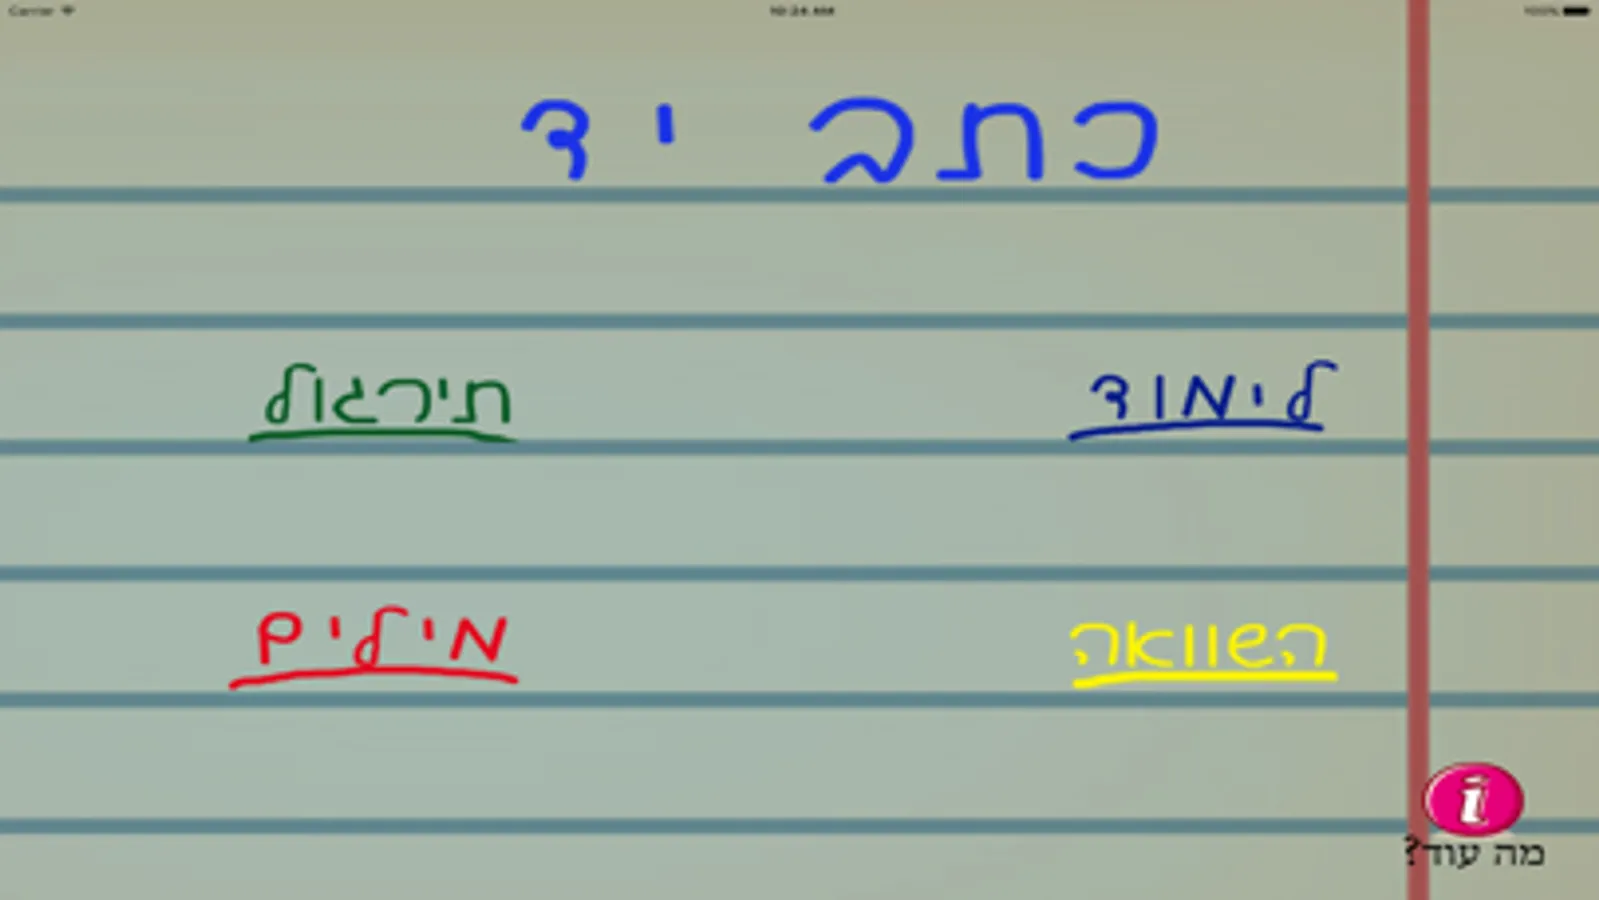 Carrier 10:24 AM 100%
כתב יד
לימוד תירגול
השוואה מילים
i
מה עוד?